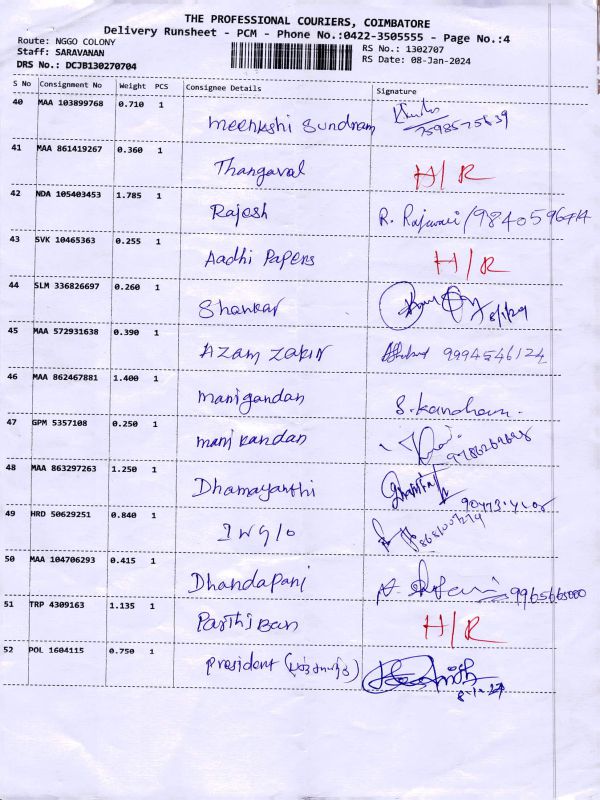 THE PROFESSIONAL COURIERS, COIMBATORE
Delivery Runsheet - PCM - Phone No.:0422-3505555 - Page No.:4
Route: NGGO COLONY
Staff: SARAVANAN
DRS No.: DCJB130270704
RS No.: 1302707
RS Date: 08-Jan-2024
S No Consignment No Weight PCS Consignee Details Signature
40 MAA 103899768 0.710 1 meenkshi Sundram
41 MAA 861419267 0.360 1 Thangaval H/R
42 NDA 105403453 1.785 1 Rajesh R. Rajwari /9840596714
43 SVK 10465363 0.255 1 Aadhi Papers H/R
44 SLM 336826697 0.260 1 Shankar 8/1/24
45 MAA 572931638 0.390 1 Azam Zakir 9994546124
46 MAA 862467881 1.400 1 manigandan S. Kandham.
47 GPM 5357108 0.250 1 manikandan
48 MAA 863297263 1.250 1 Dhamayanthi
49 HRD 50629251 0.840 1
50 MAA 104706293 0.415 1 Dhandapani 9965665000
51 TRP 4309163 1.135 1 Parthiban H/R
52 POL 1604115 0.750 1 president 8-1-24